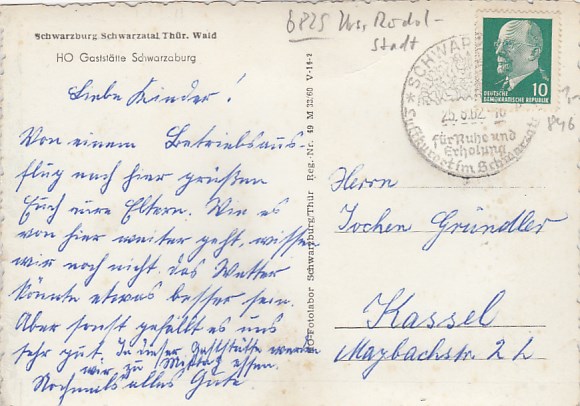 6825 Krs. Rudol-
stadt
Schwarzburg Schwarzatal Thür. Wald
HO Gaststätte Schwarzaburg
Liebe Kinder!
Von einem Betriebsaus-
flug nach hier grüßen
Euch eure Eltern. Wie es
von hier weiter geht, wissen
wir noch nicht. das Wetter
könnte etwas besser sein.
Aber sonst gefällt es uns
sehr gut. In dieser Gaststätte werden
wir zu Mittag essen.
Nochmals alles Gute
HO-Fotolabor Schwarzburg/Thür Reg.-Nr. 49 M 32/60 V-14-2
SCHWAR
25.8.62
für Ruhe und
Erholung
Luftkurort im Schwarzatal
10
DEUTSCHE
DEMOKRATISCHE REPUBLIK
846
Herrn
Jochen Gründler
Kassel
Maybachstr. 2 L